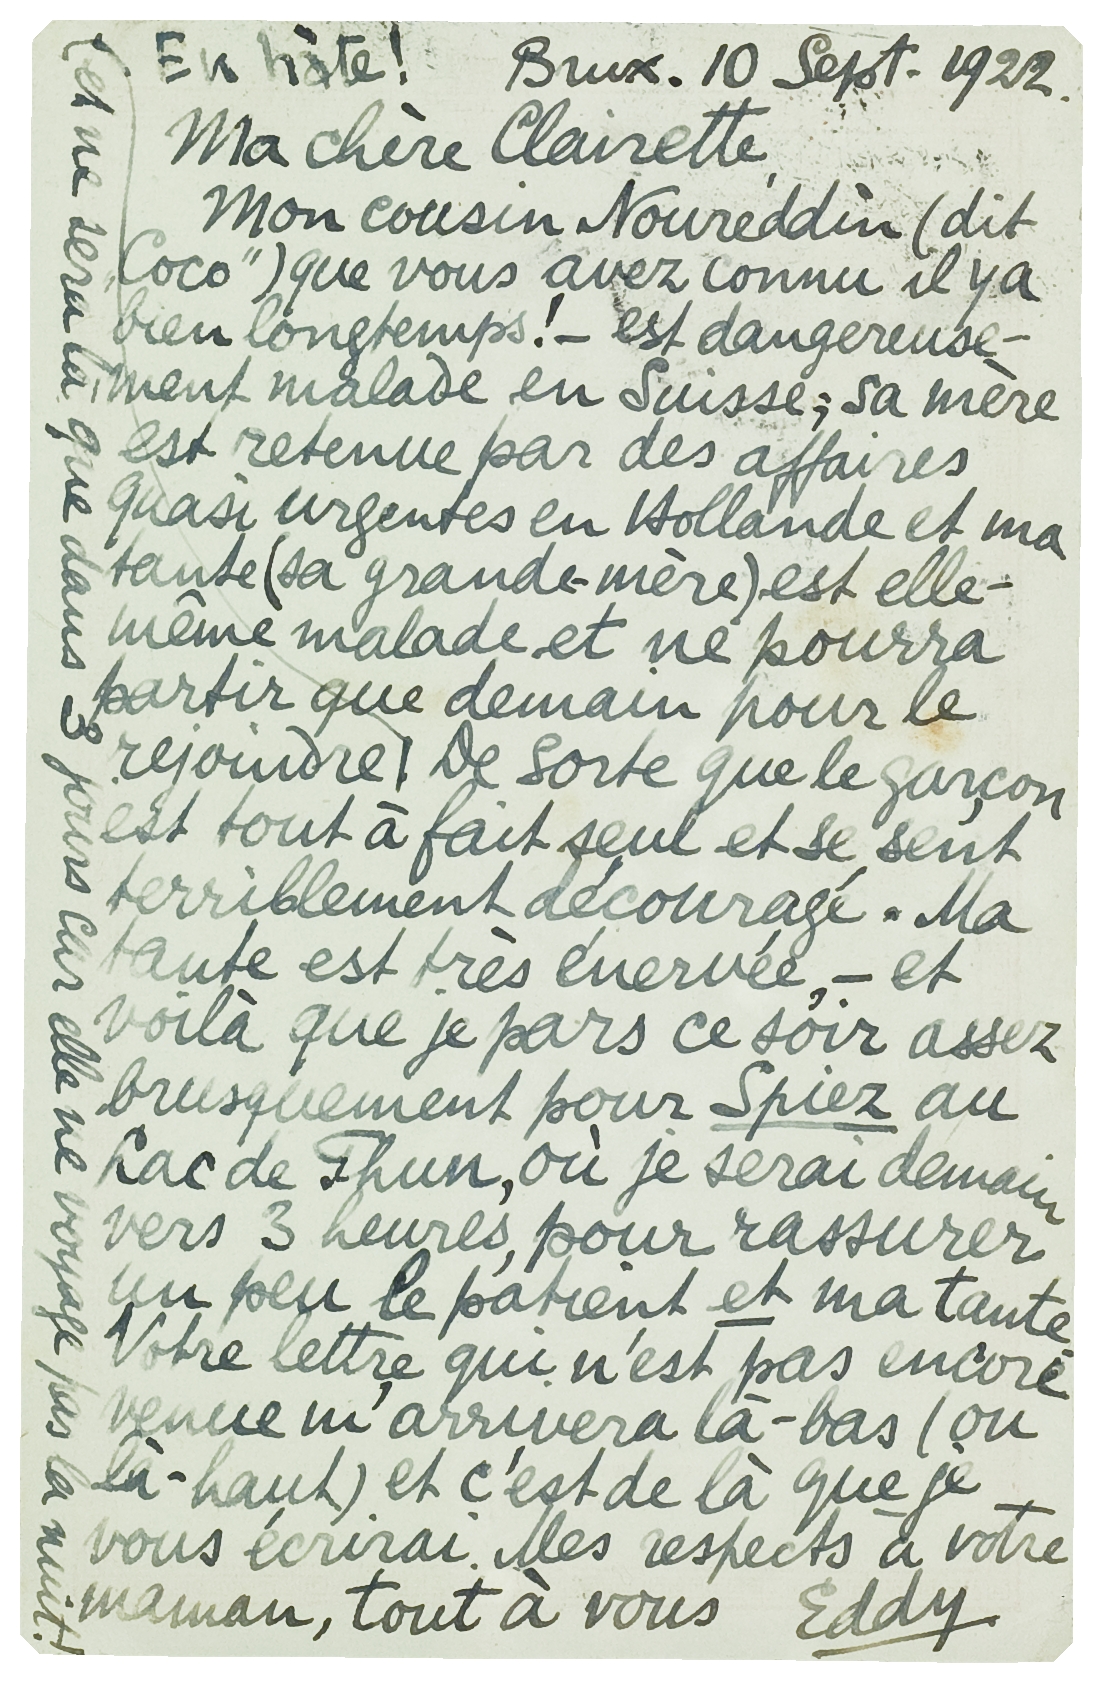 En hâte! Brux. 10 Sept. 1922.
Ma chère Clairette,
Mon cousin Noureddin (dit
„Coco") que vous avez connu il y a
bien longtemps! – est dangereuse-
ment malade en Suisse; sa mère
est retenue par des affaires
quasi urgentes en Hollande et ma
tante (sa grande-mère) est elle-
même malade et ne pourra
partir que demain pour le
rejoindre! De sorte que le garçon
est tout à fait seul et se sent
terriblement découragé. Ma
tante est très énervée, – et
voilà que je pars ce soir assez
brusquement pour Spiez au
Lac de Thun, où je serai demain
vers 3 heures, pour rassurer
un peu le patient et ma tante
Votre lettre qui n'est pas encore
venue m'arrivera là-bas (ou
là-haut) et c'est de là que je
vous écrirai. Mes respects à votre
maman, tout à vous Eddy
(et ne sera là que dans 3 jours car elle ne voyage pas la nuit!)